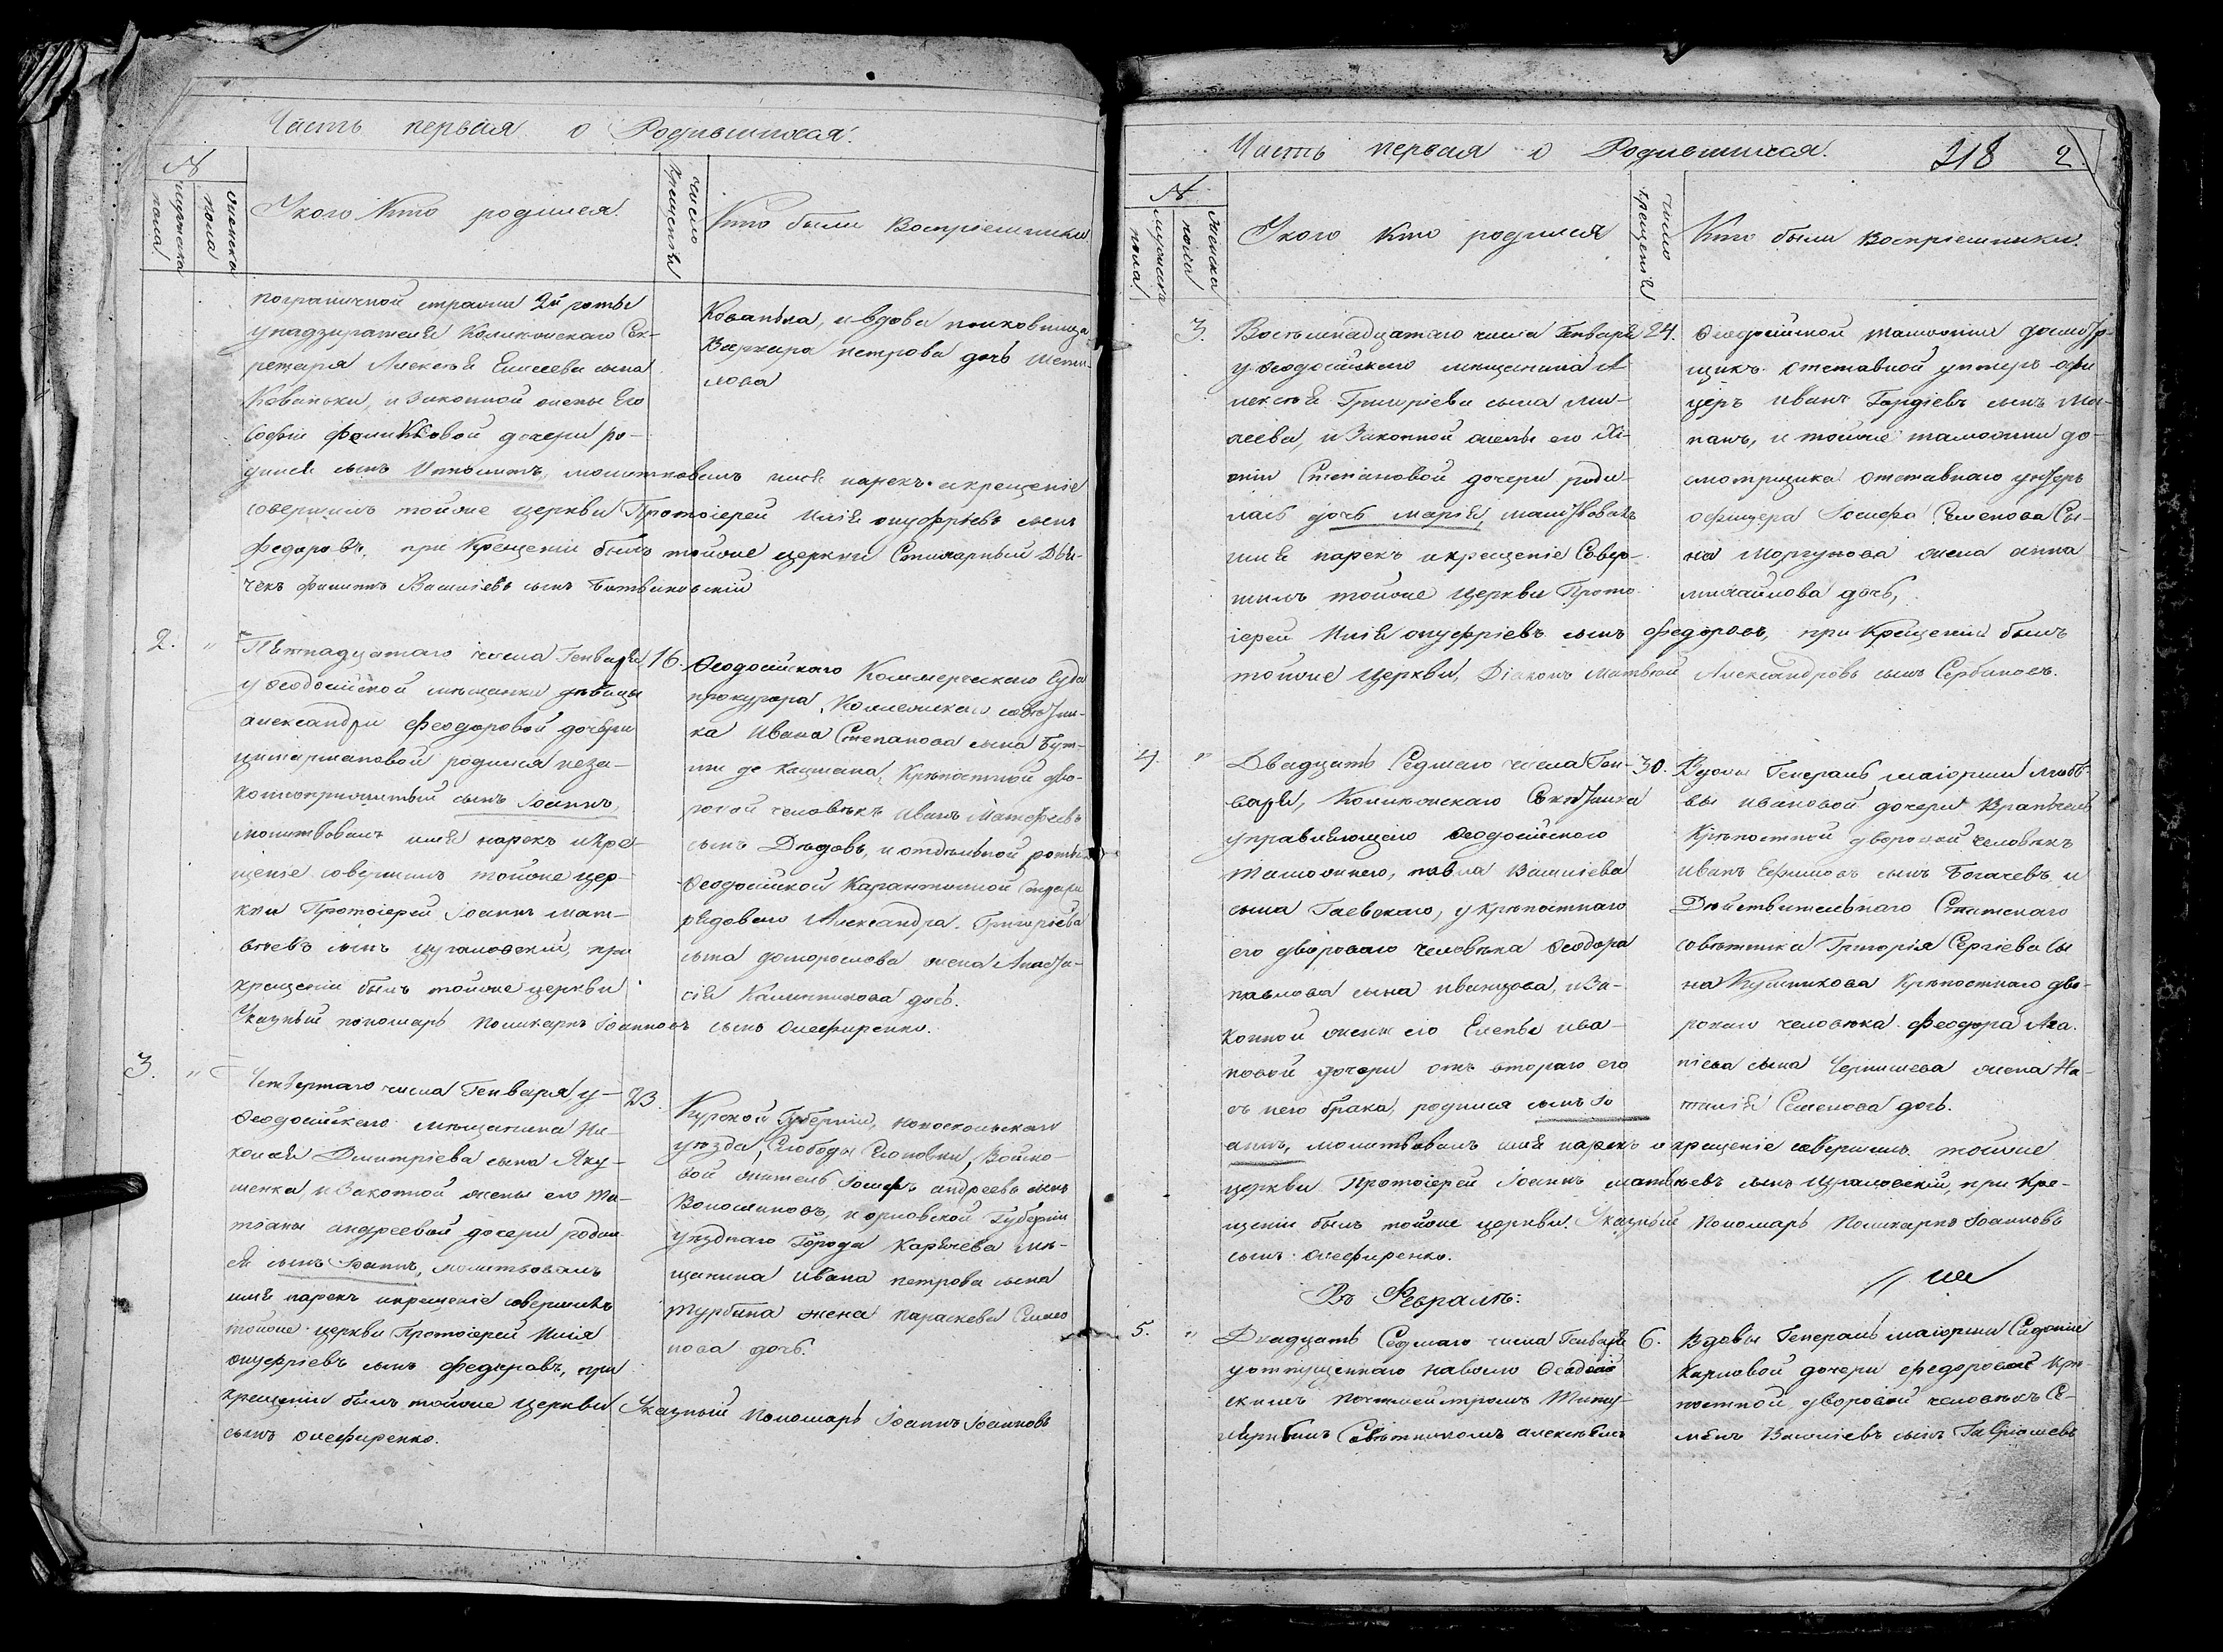 Часть первая о Родившихся.
№
мужеска пола
женска пола
У кого кто родился.
число крещенія
Кто были Воспріемники
пограничной стражи 2й роты
у надзирателя Колежскаго Сек-
ретаря Алексѣя Елисеева сына
Кованьки, и Законной жены Его
Софіи Фоминовой дочери ро-
дился сынъ Ипполитъ, молитвовалъ имя нарекъ и крещеніе
совершилъ тойже церкви Протоіерей Илія онуфріевъ сынъ
федоровъ, при Крещеніи былъ тойже церкви Стихарный Дья-
чекъ филиппъ Василіевъ сынъ
Кованька, и вдова полковница
Варвара петрова дочь
лова
2. " Пятнадцатаго числа Генваря
у Ѳеодосійской мѣщанки дѣвицы
александры Феодоровой дочери
родился неза-
коннорожитый сынъ Іоаннъ,
молитвовалъ имя нарекъ и кре-
щеніе совершилъ тойже цер-
кви Протоіерей Іоаннъ мат-
вѣевъ сынъ при
крещеніи былъ тойже церкви
Указный пономарь поликарпъ Іоанновъ сынъ Олефиренко.
16. Ѳеодосійскаго Коммерческаго Суда
прокурора, Коллежскаго совѣтни-
ка Ивана Степанова сына
де Крѣпостной дво-
ровой человѣкъ Иванъ Матфеевъ
сынъ Дѣдовъ, и отдѣльной роты
Ѳеодосійской Карантинной Стражи
рядоваго Александра Григорьева
сына доморослова жена Анаста-
сія Калинникова дочь.
3. " Четвертаго числа Генваря, у
Ѳеодосійскаго мѣщанина Ни-
колая Дмитріева сына Яку-
шенка, и Законной жены его Та-
тіаны андреевой дочери родил-
ся сынъ Іоаннъ, молитвовалъ
имя нарекъ и крещеніе совершилъ
тойже церкви Протоіерей Илія
онуфріевъ сынъ федоровъ, при
крещеніи былъ тойже церкви Указный Пономарь Іоаннъ Іоанновъ
сынъ олефиренко.
23. Курской Губерніи, новоскольскаго
уѣзда, Слободы Войско-
вой житель Іосифъ андреевъ сынъ
Волошиновъ, и орловской Губерніи
уѣзднаго Города Карачева мѣ-
щанина Ивана петрова сына
турбина жена параскева
нова дочь.
Часть первая о Родившихся.
218 2.
№
мужеска пола
женска пола
У кого кто родился
число крещенія
Кто были воспріемники.
3. Восьмнадцатаго числа Генваря
у Ѳеодосійскаго мѣщанина А-
лексѣя Григоріева сына Ми-
хеева, и Законной жены его
Степановой дочери роди-
лась дочь марія, молитвовалъ
имя нарекъ и крещеніе Совер-
шилъ тойже Церкви Прото-
іерей Илія онуфріевъ сынъ федоровъ, при крещеніи былъ
тойже Церкви, Діаконъ матвѣй Александровъ сынъ Сербиновъ.
24. Ѳеодосійской таможни досмотр-
щикъ отставной унтеръ офи-
церъ иванъ Гордіевъ сынъ
и тойже таможни до-
смотрщика отставнаго унтеръ
офицера Іосифа Семенова Сы-
на Моргунова жена анна
михайлова дочь,
4. " Двадцать Седмаго числа Ген-
варя, Колежскаго Совѣтника
управляющаго Ѳеодосійскою
таможнею, павла Василіева
сына Гаевскаго, у крѣпостнаго
его двороваго человѣка Ѳеодора
павлова сына иванцова, и За-
конной жены его Елены ива-
новой дочери отъ втораго его
съ нею брака, родился сынъ Іо
аннъ, молитвовалъ имя нарекъ и крещеніе совершилъ тойже
церкви Протоіерей Іоаннъ матвѣевъ сынъ при кре-
щеніи былъ тойже церкви. Указный пономарь Поликарпъ Іоанновъ
сынъ олефиренко.
30. Вдовы Генералъ маіорши любо-
вы ивановой дочери
Крѣпостной дворовой человѣкъ
иванъ Ефимовъ сынъ Богачевъ, и
Дѣйствительнаго Статскаго
совѣтника Григорія Сергіева сы
на Кушникова Крѣпостнаго дво-
роваго человѣка феодора Ага-
піева сына Чернишева жена На-
талія Семенова дочь.
Въ Февралѣ:
5. " Двадцать Седмаго числа Генваря
у отпущеннаго на волю Ѳеодосій
скимъ почтмейстромъ Титу-
лярнымъ Совѣтникомъ алексѣемъ
6. Вдовы Генералъ маіорши Сидоніи
Карловой дочери федоровой крѣ
постной дворовой человѣкъ Се-
менъ Василіевъ сынъ Гаврюшевъ